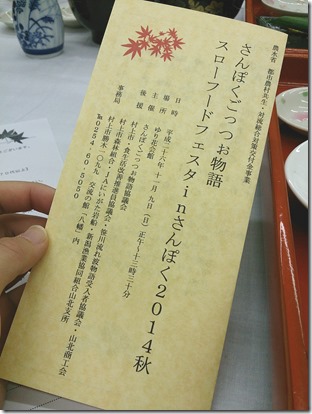 農水省 都市農村共生・対流総合対策交付金事業
さんぽくごっつぉ物語
スローフードフェスタinさんぽく2014秋
日時 平成二十六年十一月九日(日)正午~十三時三十分
場所 ゆり花会館
主催 さんぽくごっつぉ物語協議会
後援 村上市・食生活改善推進員協議会・笹川流れ波物語受入者協議会・山北商工会
村上市森林組合・JAにいがた岩船・新潟漁業協同組合山北支所
事務局 村上市勝木一〇九九 交流の館「八幡」内
℡0254-60-5050